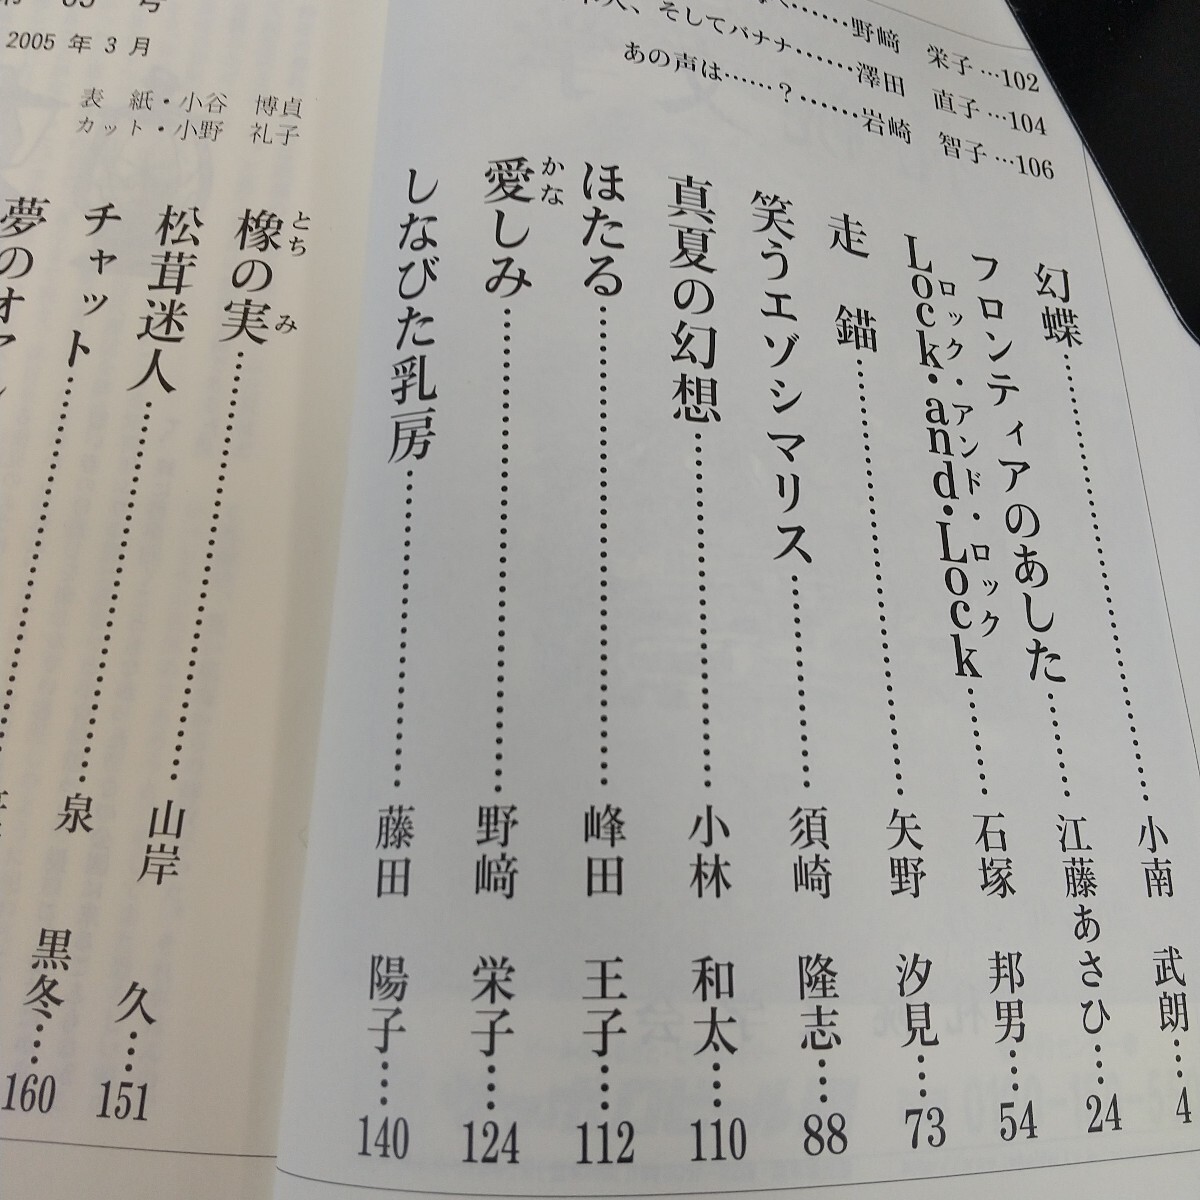 野﨑 栄子…102
人、そしてバナナ……澤田 直子…104
あの声は……？……岩崎 智子…106
幻蝶……小南 武朗…4
フロンティアのあした……江藤あさひ…24
ロック・アンド・ロック
Lock・and・Lock……石塚 邦男…54
走 錨……矢野 汐見…73
笑うエゾシマリス……須崎 隆志…88
真夏の幻想……小林 和太…110
ほたる……峰田 王子…112
かな
愛しみ……野﨑 栄子…124
しなびた乳房……藤田 陽子…140
号
2005年3月
表 紙・小谷 博貞
カット・小野 礼子
とち み
橡の実……山岸 久…151
松茸迷人……泉 黒冬…160
チャット……
夢のオア